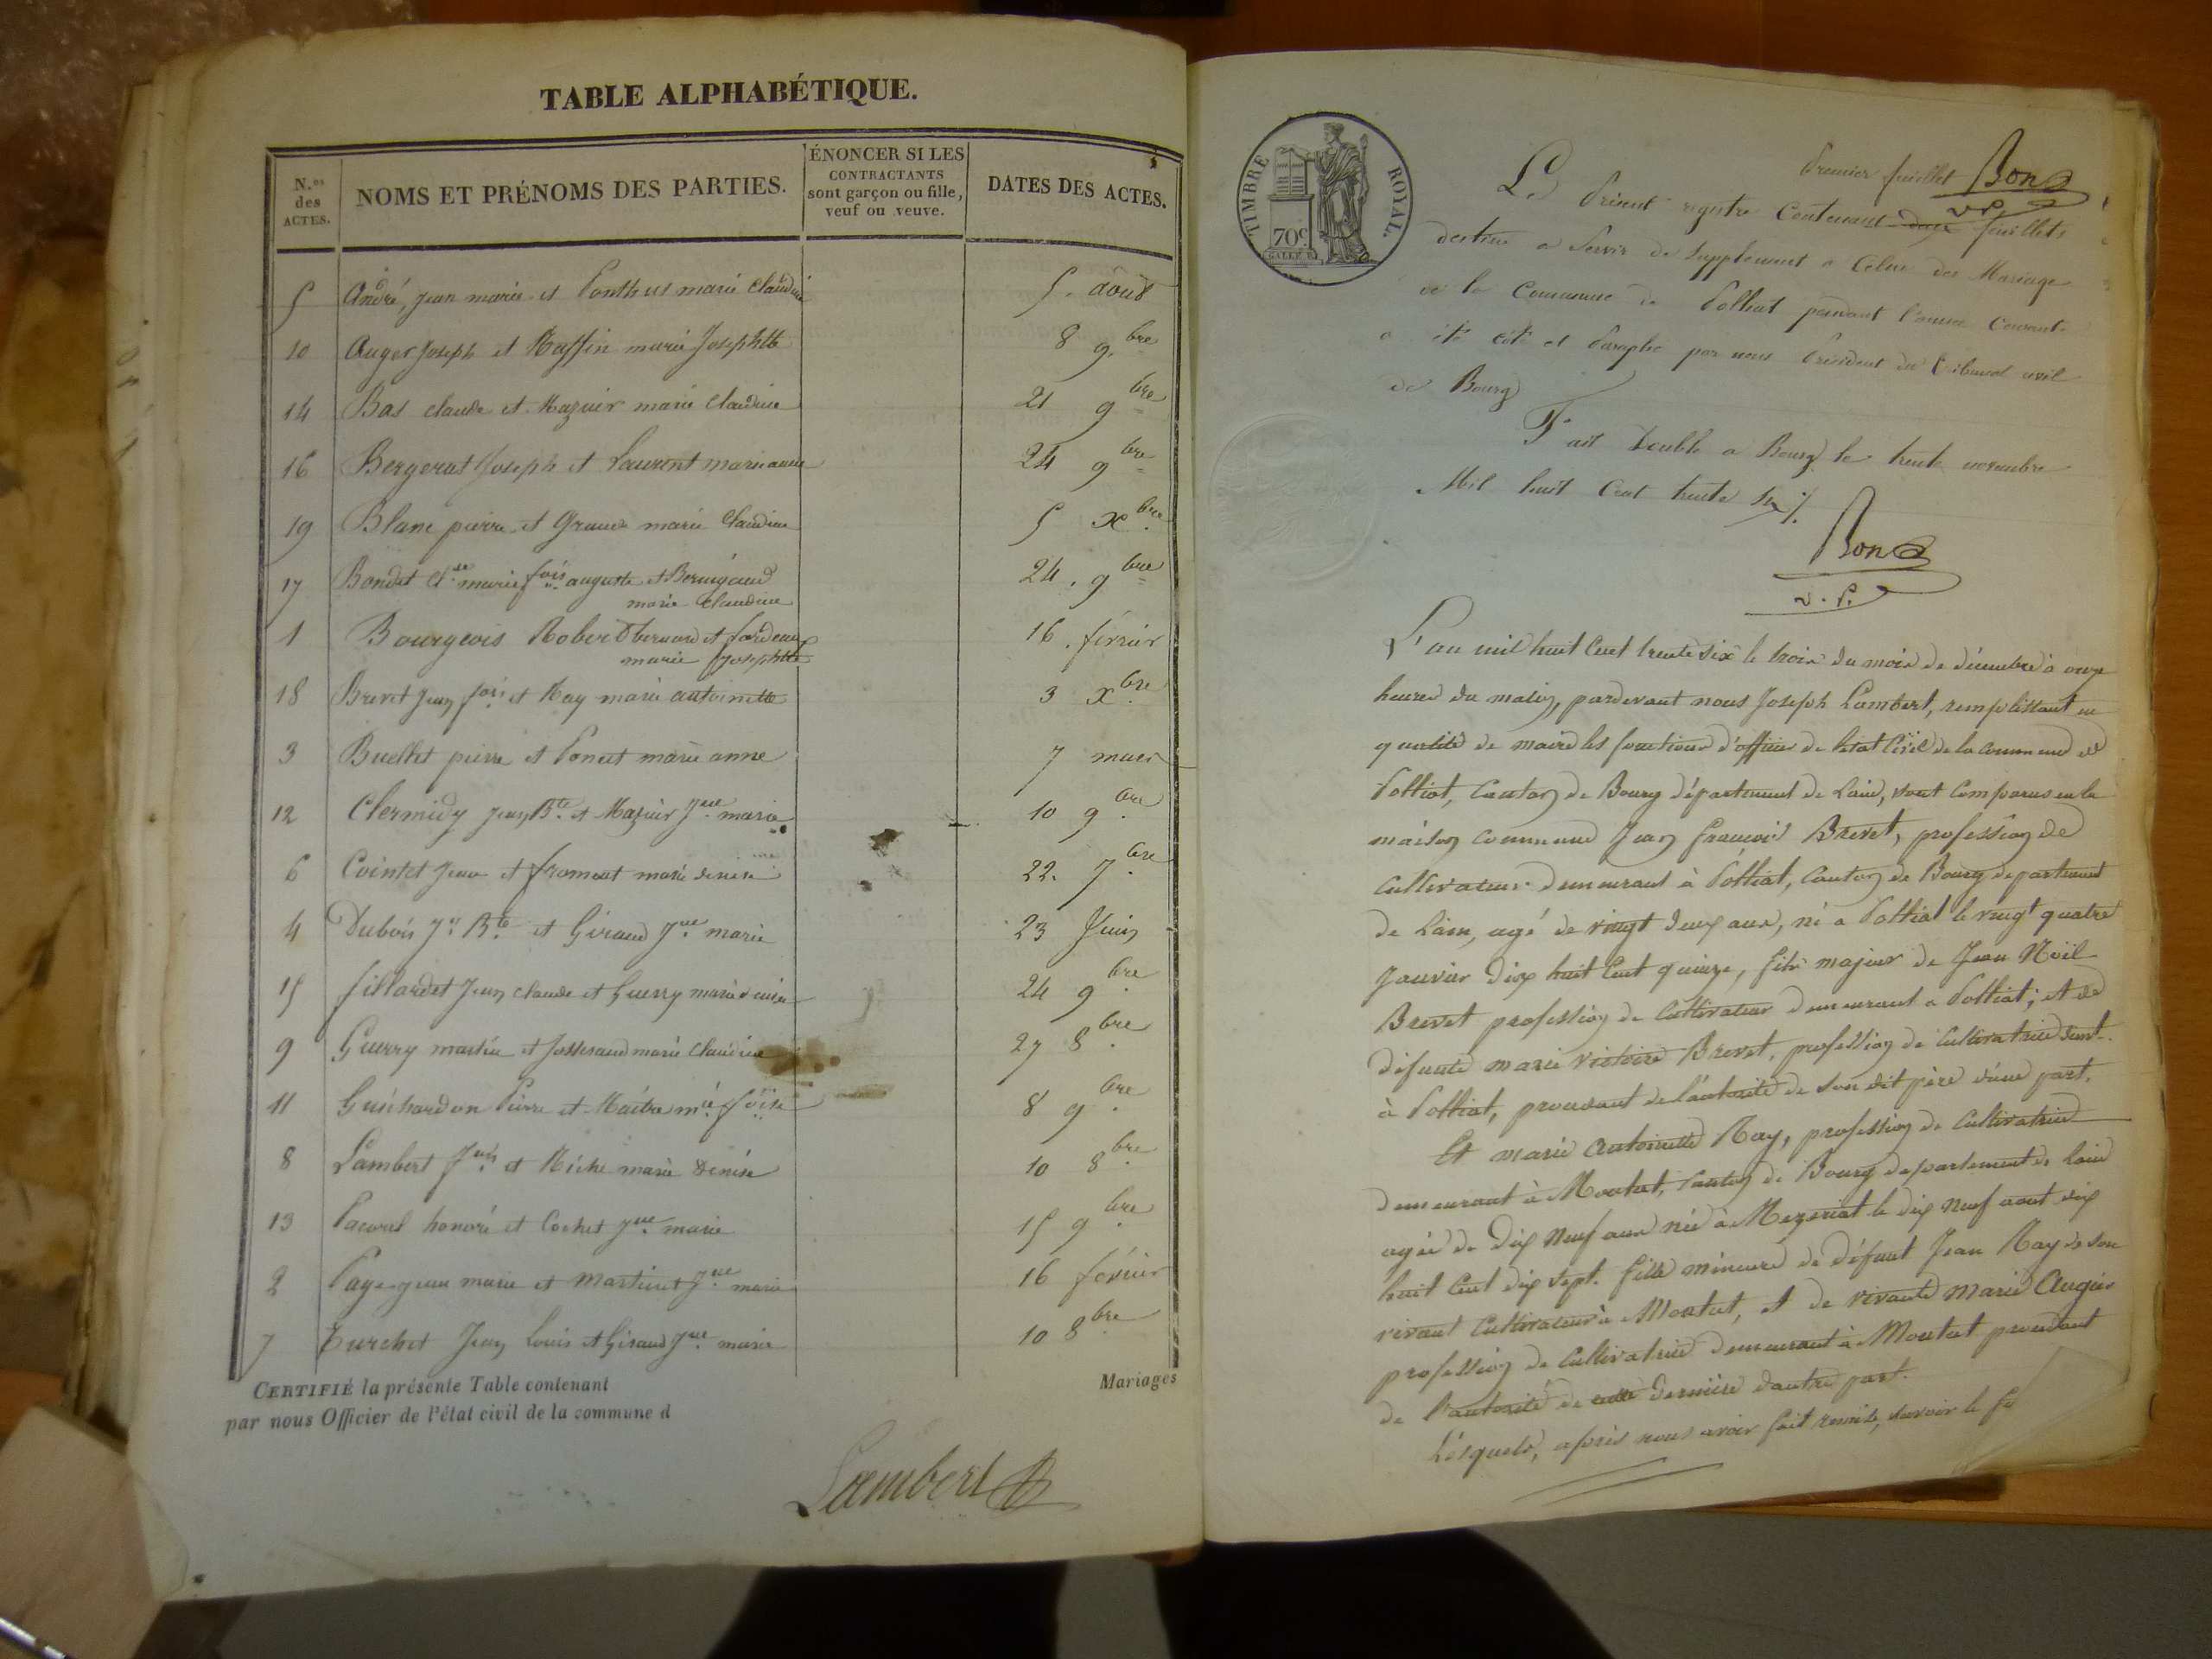 TABLE ALPHABÉTIQUE.
N.os des ACTES.
NOMS ET PRÉNOMS DES PARTIES.
ÉNONCER SI LES CONTRACTANTS sont garçon ou fille, veuf ou veuve.
DATES DES ACTES.
5 André, jean marie et Ponthus marie Claudine 5. août
10 Auger Joseph et Raffin marie Josephte 8 9.bre
14 Bas claude et Mazuir marie Claudine 21 9bre
16 Bergerat Joseph et Laurent marie anne 24 9bre
19 Blanc pierre et marie Claudine 5 xbre
17 Bondet Cl.de marie fois auguste et
marie Claudine 24. 9bre
1 Bourgeois Robert bernard et
marie Josephte 16. février
18 Brevet Jean fois et Ray marie antoinette 3 xbre
3 Buellet pierre et Poncet marie anne 7 mars
12 Clermidy Jean Bte et Mazuir Jne marie 10 9bre
6 Cointet Jean et froment marie denise 22. 7bre
4 Dubois Jn Bte et Giraud Jne marie 23 Juin
15 fillardet Jean claude et Guerry marie denise 24 9bre
9 Guerry martin et Josserand marie Claudine 27 8bre
11 Guichardon Pierre et Maitre mie foise 8 9bre
8 Lambert fois et Miche marie denise 10 8bre
13 Pacoud honoré et Cochet Jne marie 15 9bre
2 Page jean marie et Martinet Jne marie 16 février
7 Turchet Jean Louis et Giraud Jne marie 10 8bre
CERTIFIÉ la présente Table contenant Mariages
par nous Officier de l'état civil de la commune d
Lambert
TIMBRE ROYAL.
70c
Premier feuillet Bon
V.P.
Le Présent registre Contenant douze feuillets
destiné a Servir de Supplément a Celui des Mariage
de la Commune de Polliat pendant l'année Courante
a été côté et Paraphé par nous Président du tribunal civil
de Bourg
Fait Double a Bourg le trente novembre
Mil huit Cent trente Six
Bon
V.P.
L'an mil huit Cent trente six le trois du mois de décembre à onze
heures du matin, pardevant nous Joseph Lambert, remplissant en
qualité de maire les fonctions d'officier de l'état Civil de la commune de
Polliat, Canton de Bourg département de Lain, sont Comparus en la
maison commune Jean françois Brevet, profession de
Cultivateur demeurant à Polliat, Canton de Bourg département
de Lain, agé de vingt deux ans, né a Polliat le vingt quatre
Janvier dix huit Cent quinze, fils majeur de Jean Noël
Brevet profession de Cultivateur demeurant a Polliat; et de
défunte marie victoire Brevet, profession de Cultivatrice
à Polliat, procédant de l'autorité de son dit père d'une part.
Et marie Antoinette Ray, profession de Cultivatrice
demeurant à Montcet, Canton de Bourg département de Lain
agée de dix neuf ans née à Mezeriat le dix neuf aout dix
huit Cent dix sept. fille mineure de défunt Jean Ray de son
vivant Cultivateur à Montcet, et de vivante marie
profession de Cultivatrice demeurant à Montcet procédant
de l'autorité de cette dernière dautre part.
Lesquels, après nous avoir fait remise, savoir le